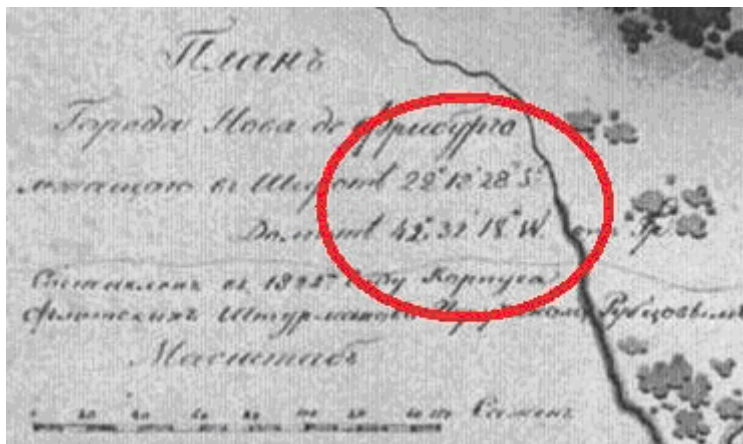 Планъ
Города Нова де Фрибурго
лежащаго въ Широтѣ 22° 12' 28" S.
Долготѣ 42° 31' 18" W. отъ Гр
Составленъ въ 182 Году Корпуса
Флотскихъ Штурмановъ Рубцовымъ
Масштабъ
0 20 40 Сажень